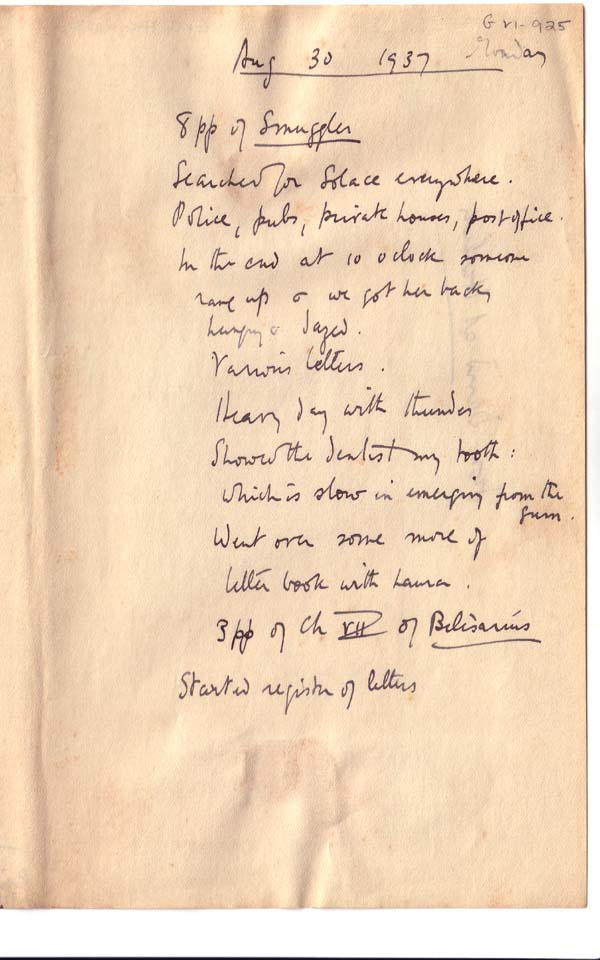 G VI-925
Aug 30 1937 Monday
8 pp of Smuggler
Searched for Solace everywhere.
Police, pubs, private houses, post office.
In the end at 10 o clock someone
rang up & we got her back,
hungry & dazed.
Various letters.
Heavy day with thunder
Showed the dentist my tooth:
which is slow in emerging from the
gum.
Went over some more of
letter book with Laura.
3 pp of Ch VII of Belisarius
Started register of letters